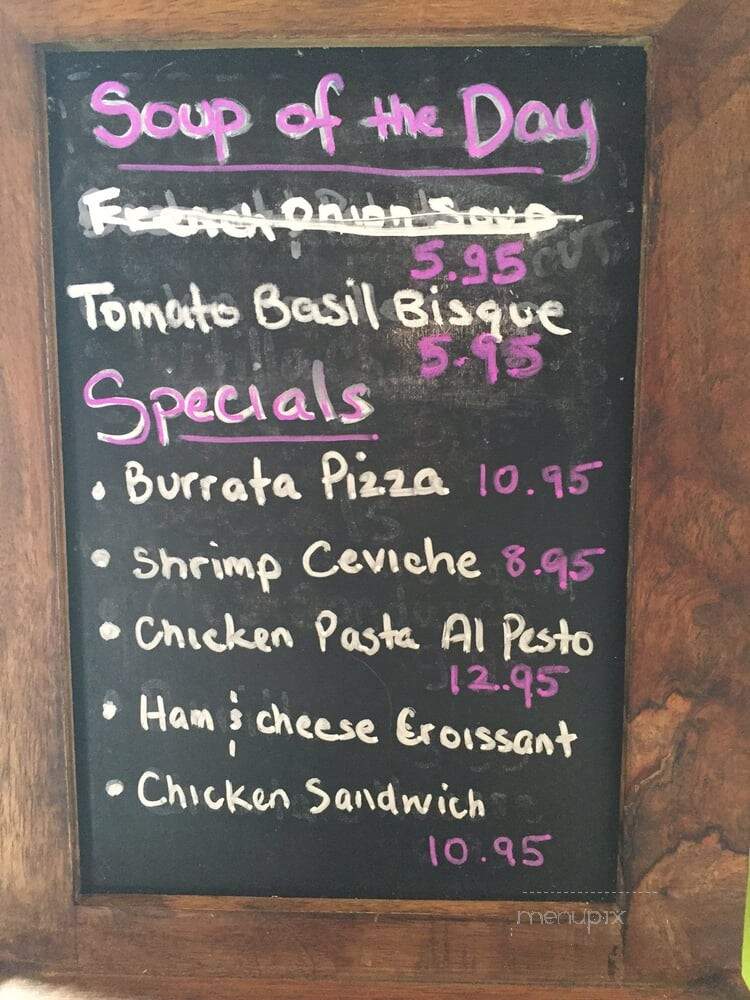 Soup of the Day
French Onion Soup
5.95
Tomato Basil Bisque
5.95
Specials
• Burrata Pizza 10.95
• Shrimp Ceviche 8.95
• Chicken Pasta Al Pesto
12.95
• Ham & cheese Croissant
• Chicken Sandwich
10.95
menupix